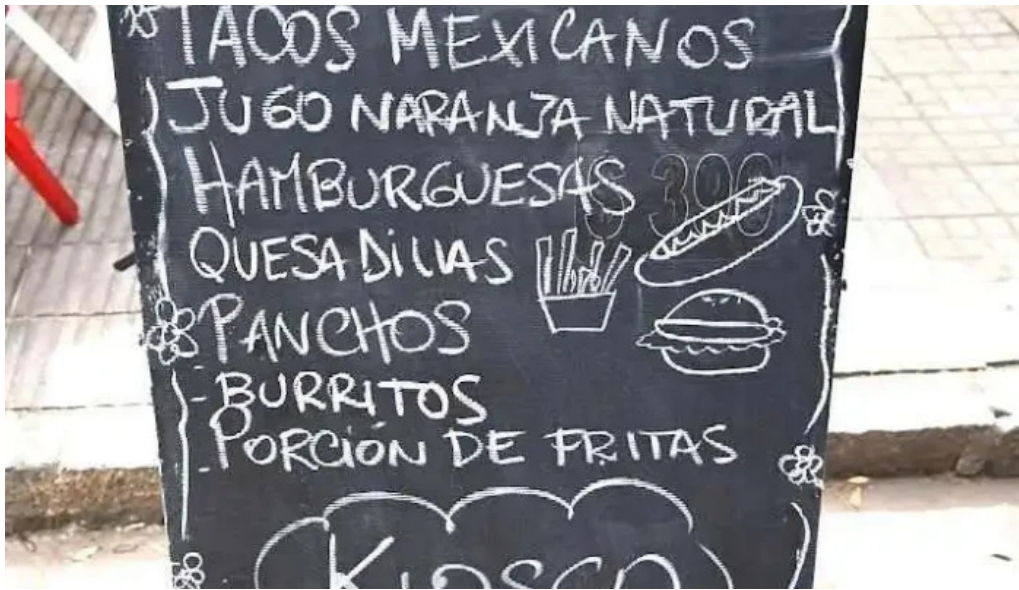 TACOS MEXICANOS
JUGO NARANJA NATURAL
HAMBURGUESAS
QUESADILLAS
PANCHOS
-BURRITOS
-PORCIÓN DE FRITAS
KIOSCO